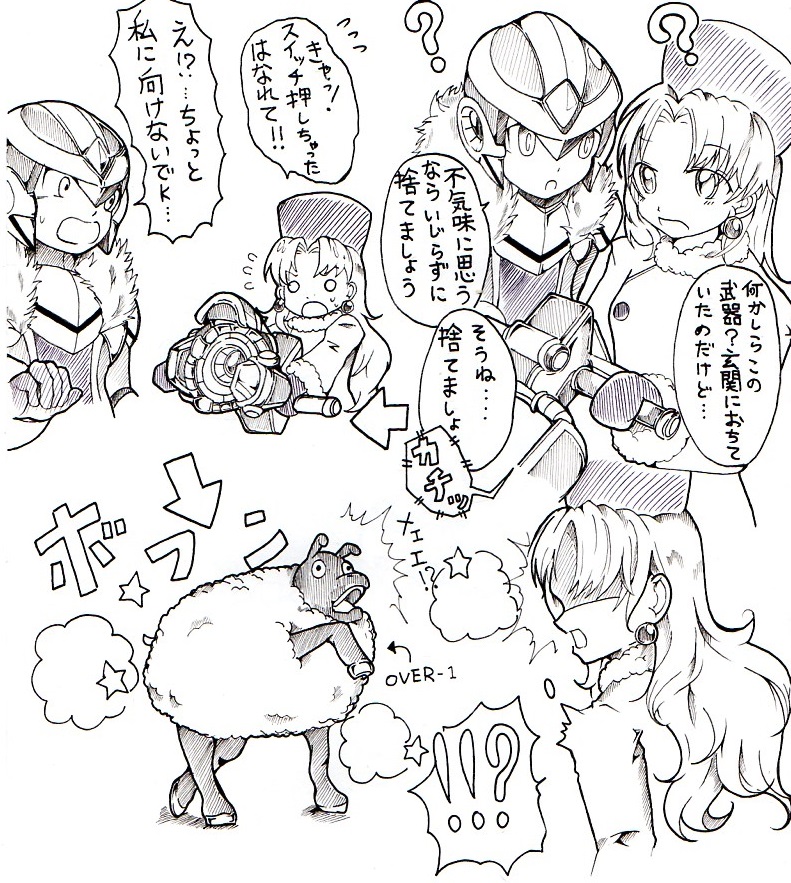 ?
?
何かしらこの
武器?玄関におちて
いたのだけど…
不気味に思う
ならいじらずに
捨てましょう
そうね….
捨てましょ
カチッ
きゃっ!
スイッチ押しちゃった
はなれて!!
え!?…ちょっと
私に向けないでK…
ボフン
メエエ!?
OVER-1
!!?